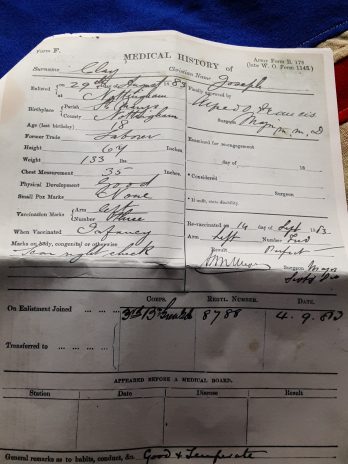 Form F.
Army Form B. 178
MEDICAL HISTORY of
(late W. O. Form 1143)
Surname Clay Christian Name Joseph
Enlisted 29th day August 83
at Nottingham
Finally approved by
Birthplace Parish St Marys
County Nottingham
Surgeon
Age (last birthday) 18
Former Trade Laborer
Examined for re-engagement
Height 67 Inches
day of 18
Weight 133 lbs.
* Considered
Chest Measurement 35 Inches
Surgeon
Physical Development Good
* If unfit, state disability.
Small Pox Marks None
Vaccination Marks Arm left
Number three
Re-vaccinated on 14 Sept 1883
When Vaccinated Infancy
Arm Left Number Two
Marks on body, congenital or otherwise
Result Perfect
right cheek
Surgeon
CORPS. REGTL. NUMBER. DATE.
On Enlistment Joined 8788 4.9.83
Transferred to
APPEARED BEFORE A MEDICAL BOARD.
Station Date Disease Result
General remarks as to habits, conduct, &c. Good & Temperate